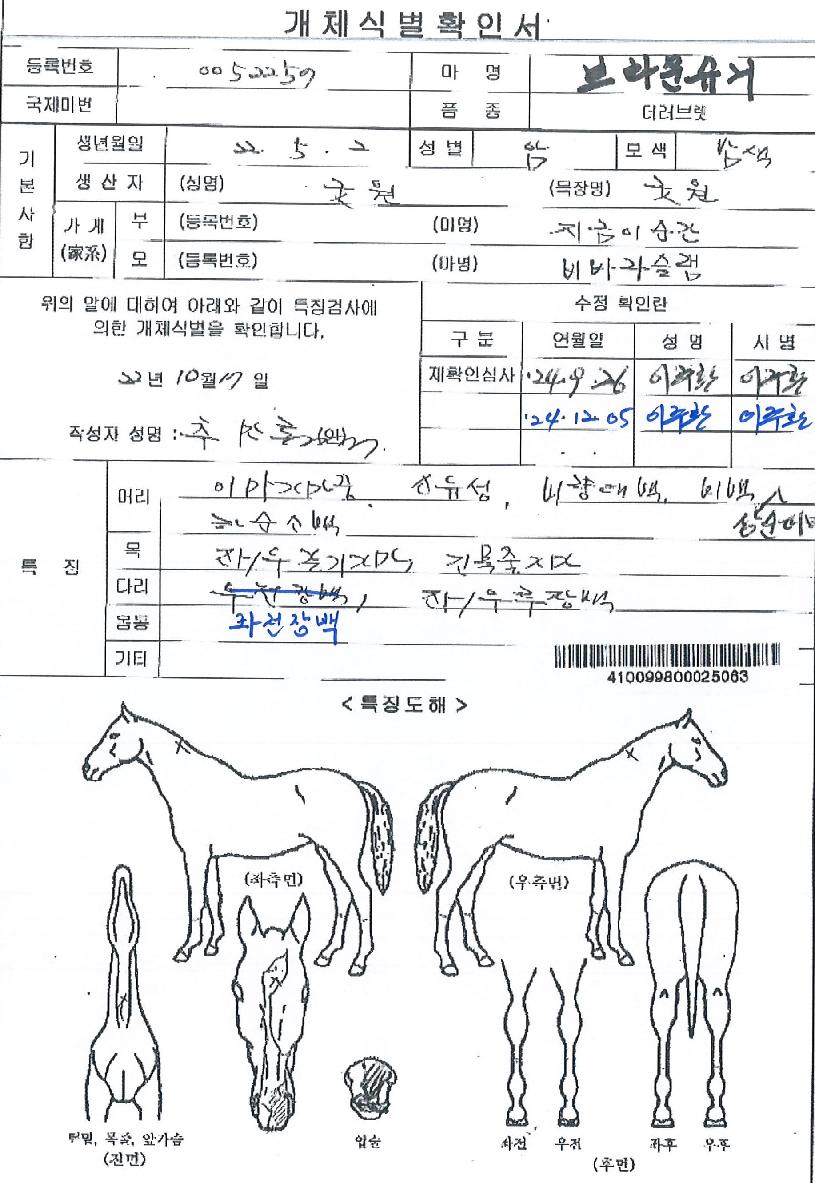 개체식별확인서
등록번호 0052259 마 명 브라운슈거
국제마번 품 종 더러브렛
기본사항
생년월일 22. 5. 2 성별 암 모색 밤색
생산자 (성명) 굿원 (목장명) 굿원
가계(家系) 부 (등록번호) (마명) 지금이순간
모 (등록번호) (마명) 비바라슬램
위의 말에 대하여 아래와 같이 특징검사에
의한 개체식별을 확인합니다.
22년 10월 17일
작성자 성명 :
수정 확인란
구 분 연월일 성 명 서 명
재확인심사 '24.9.26 이주환 이주환
'24.12.05 이주환 이주환
특 징
머리 이마 유성, 비량대백, 비백
하순소백
목 좌/우
다리 우전장백, 좌/우후장백
몸통 좌전장백
기타
410099800025063
< 특징도해 >
(좌측면)
(우측면)
턱밑, 목줄, 앞가슴
(전면)
입술
좌전 우전 좌후 우후
(후면)